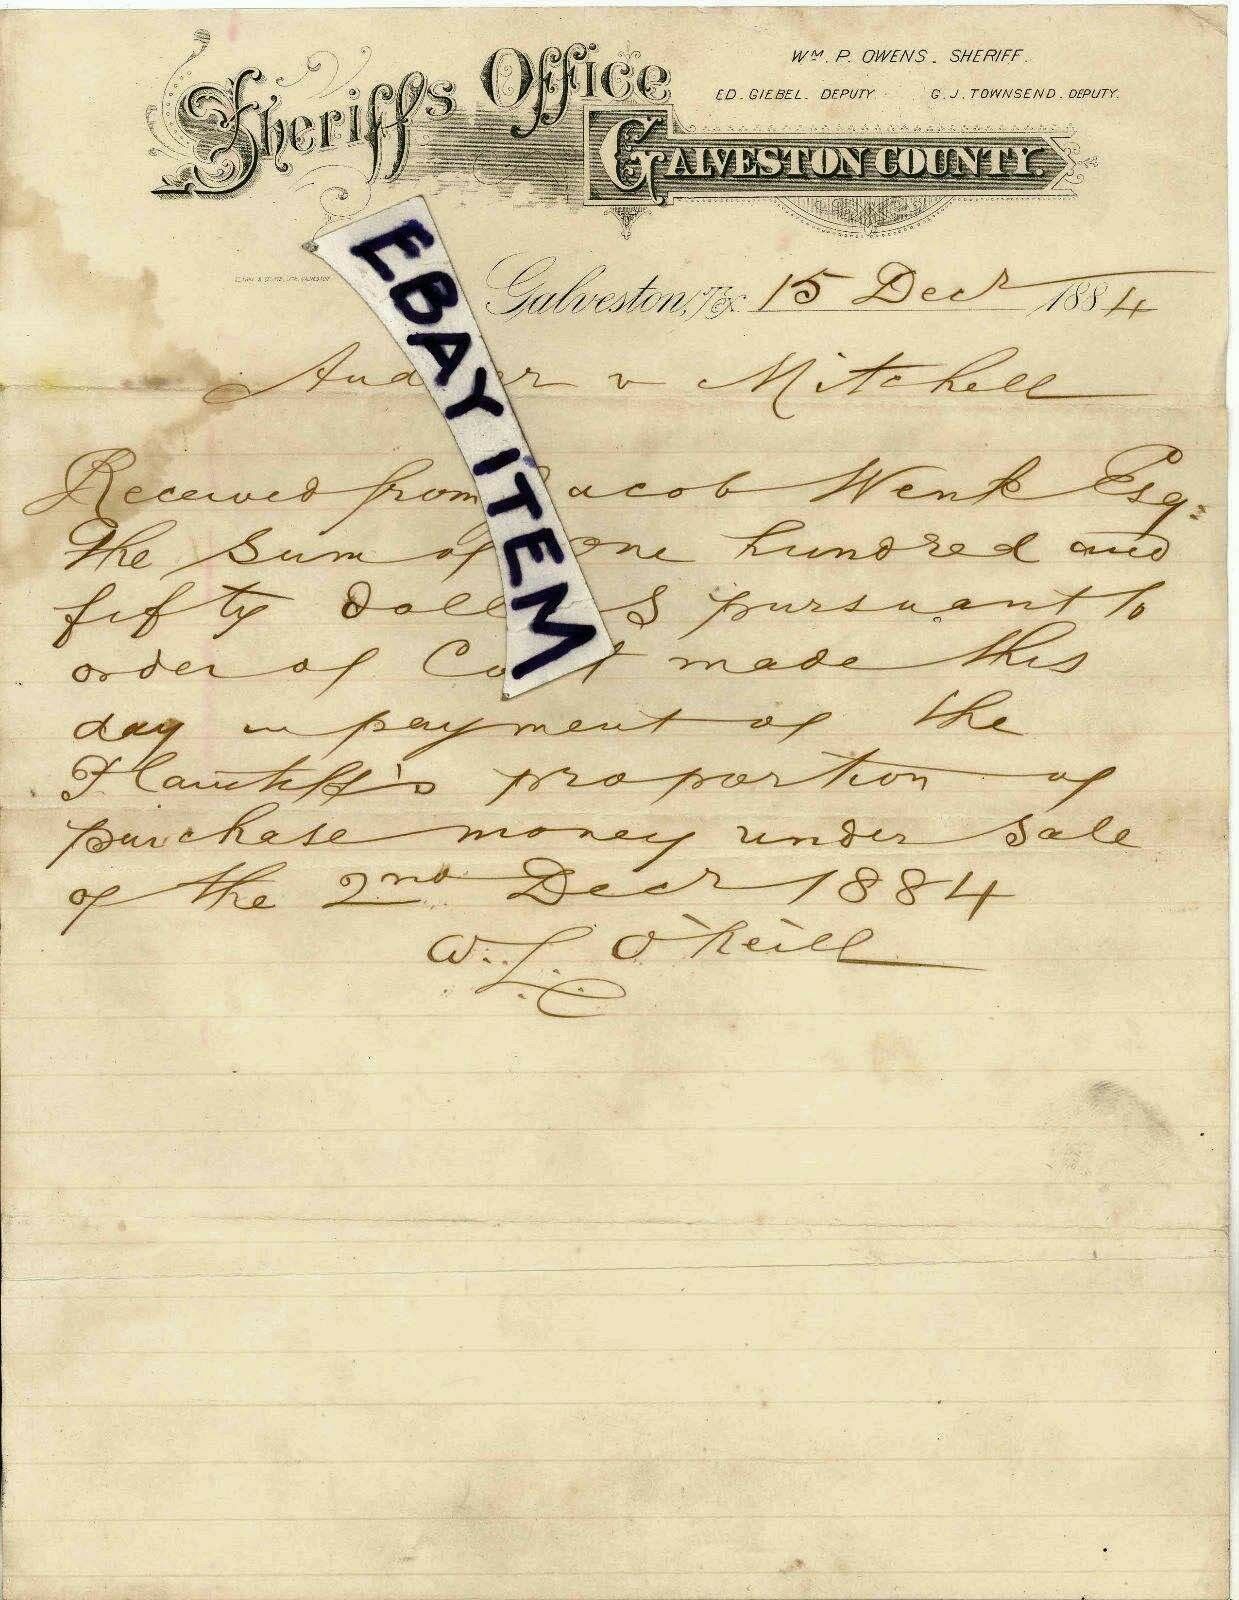 Sheriff's Office
Galveston County.
Wm. P. Owens. Sheriff.
Ed. Giebel. Deputy. G. J. Townsend. Deputy.
EBAY ITEM
Galveston, Tex. 15 Decr 1884
v Mitchell
Received from Jacob Wenk Esq.
the sum of one hundred and
fifty dollars pursuant to
order of Court made this
day in payment of the
Plaintiff's proportion of
purchase money under sale
of the 2nd Decr 1884
W. L. O'Neill